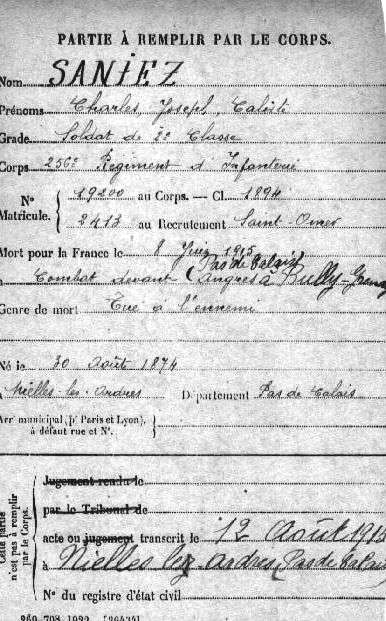 PARTIE À REMPLIR PAR LE CORPS.
Nom SANIEZ
Prénoms Charles Joseph, Caliste
Grade Soldat de 2e Classe
Corps 256e Regiment d'Infanterie
N° Matricule. 19200 au Corps. — Cl. 1894
2413 au Recrutement Saint-Omer
Mort pour la France le 8 Juin 1915
(Pas de Calais)
à Combat devant Angres à Bully-Grenay
Genre de mort Tué a l'ennemi
Né le 30 Août 1874
à Nielles-les-Ardres Département Pas de Calais
Arr<sup>t</sup> municipal (p<sup>r</sup> Paris et Lyon),
à défaut rue et N°.
Cette partie n'est pas à remplir par le Corps.
Jugement rendu le
par le Tribunal de
acte ou jugement transcrit le 12 Août 1915
à Nielles les-Ardres, Pas de Calais
N° du registre d'état civil